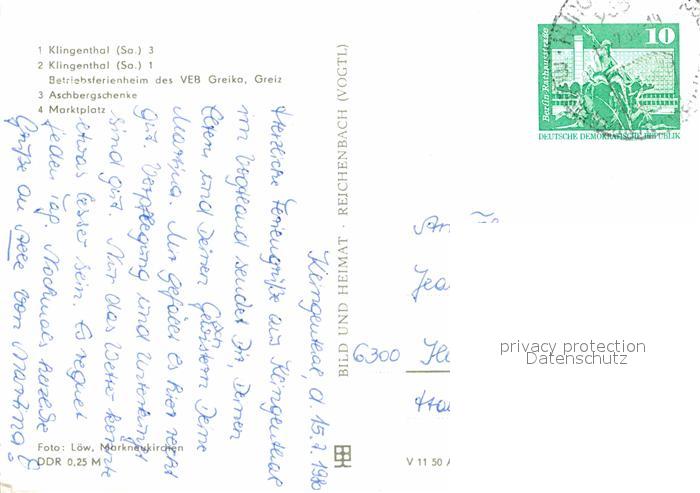 1 Klingenthal (Sa.) 3
2 Klingenthal (Sa.) 1
Betriebsferienheim des VEB Greika, Greiz
3 Aschbergschenke
4 Marktplatz
Klingenthal, d. 15.7. 1980
Herzliche Feriengrüße aus Klingenthal
im Vogtland sendet Dir, Deinen
Eltern und Deinen Geschwistern Deine
Martina. Mir gefällt es hier recht
gut. Verpflegung und Unterkunft
sind gut. Nur das Wetter könnte
etwas besser sein. Es regnet
jeden Tag. Nochmals herzliche
Grüße an Alle von Martina
Foto: Löw, Markneukirchen
DDR 0,25 M
BILD UND HEIMAT · REICHENBACH (VOGTL)
V 11 50
10
Berlin, Rathausstraße
DEUTSCHE DEMOKRATISCHE REPUBLIK
An
6300
privacy protection
Datenschutz